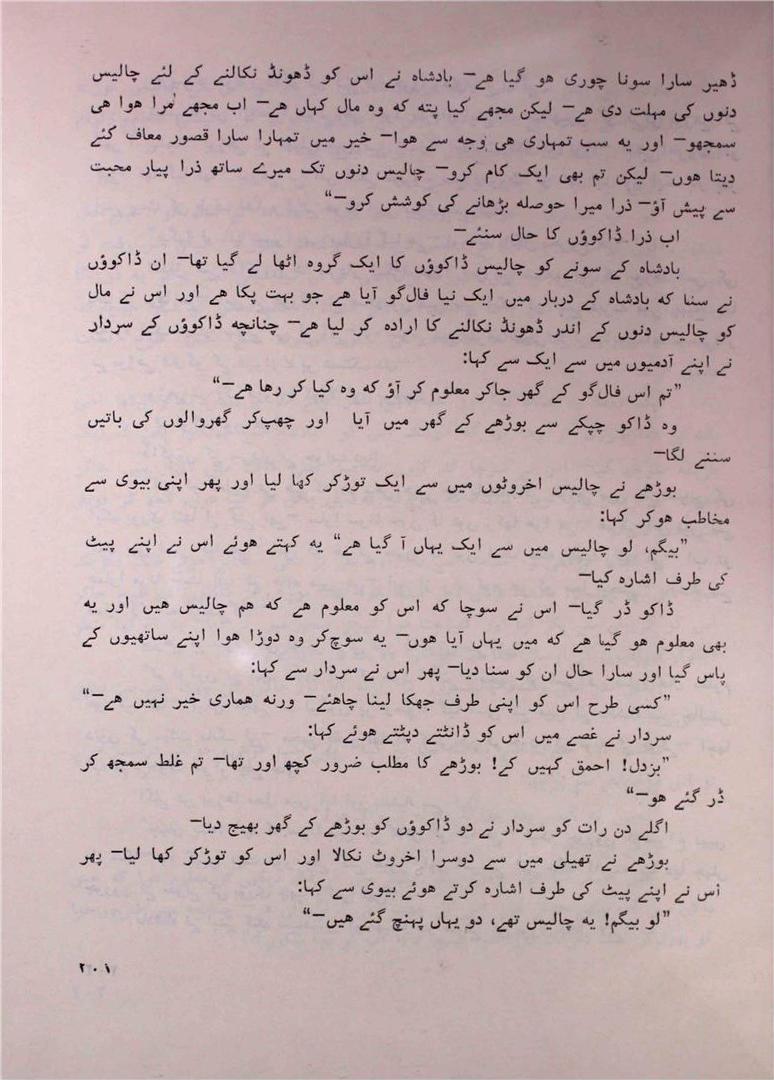 ڈھیر سارا سونا چوری ھو گیا ھے— بادشاہ نے اس کو ڈھونڈ نکالنے کے لئے چالیس
دنوں کی مہلت دی ھے— لیکن مجھے کیا پته که وہ مال کہاں ھے— اب مجھے مُرا ھوا ھی
سمجھو— اور یه سب تمہاری ھی وجه سے ھوا— خیر میں تمہارا سارا قصور معاف کئے
دیتا ھوں— لیکن تم بھی ایک کام کرو— چالیس دنوں تک میرے ساتھ ذرا پیار محبت
سے پیش آؤ— ذرا میرا حوصله بڑھانے کی کوشش کرو—“
اب ذرا ڈاکوؤں کا حال سنئے—
بادشاہ کے سونے کو چالیس ڈاکوؤں کا ایک گروہ اٹھا لے گیا تھا— ان ڈاکوؤں
نے سنا که بادشاہ کے دربار میں ایک نیا فال‌گو آیا ھے جو بہت پکا ھے اور اس نے مال
کو چالیس دنوں کے اندر ڈھونڈ نکالنے کا ارادہ کر لیا ھے— چنانچه ڈاکوؤں کے سردار
نے اپنے آدمیوں میں سے ایک سے کہا:
”تم اس فال‌گو کے گھر جاکر معلوم کر آؤ که وہ کیا کر رھا ھے—“
وہ ڈاکو چپکے سے بوڑھے کے گھر میں آیا اور چھپ‌کر گھروالوں کی باتیں
سننے لگا—
بوڑھے نے چالیس اخروٹوں میں سے ایک توڑکر کھا لیا اور پھر اپنی بیوی سے
مخاطب ھوکر کہا:
”بیگم، لو چالیس میں سے ایک یہاں آ گیا ھے“ یه کہتے ھوئے اس نے اپنے پیٹ
کی طرف اشارہ کیا—
ڈاکو ڈر گیا— اس نے سوچا که اس کو معلوم ھے که ھم چالیس ھیں اور یه
بھی معلوم ھو گیا ھے که میں یہاں آیا ھوں— یه سوچ‌کر وہ دوڑا ھوا اپنے ساتھیوں کے
پاس گیا اور سارا حال ان کو سنا دیا— پھر اس نے سردار سے کہا:
”کسی طرح اس کو اپنی طرف جھکا لینا چاھئے— ورنه ھماری خیر نہیں ھے—“
سردار نے غصے میں اس کو ڈانٹتے دپٹتے ھوئے کہا:
”بزدل! احمق کہیں کے! بوڑھے کا مطلب ضرور کچھ اور تھا— تم غلط سمجھ کر
ڈر گئے ھو—“
اگلے دن رات کو سردار نے دو ڈاکوؤں کو بوڑھے کے گھر بھیج دیا—
بوڑھے نے تھیلی میں سے دوسرا اخروٹ نکالا اور اس کو توڑکر کھا لیا— پھر
اس نے اپنے پیٹ کی طرف اشارہ کرتے ھوئے بیوی سے کہا:
”لو بیگم! یه چالیس تھے، دو یہاں پہنچ گئے ھیں—“
۲۰۱